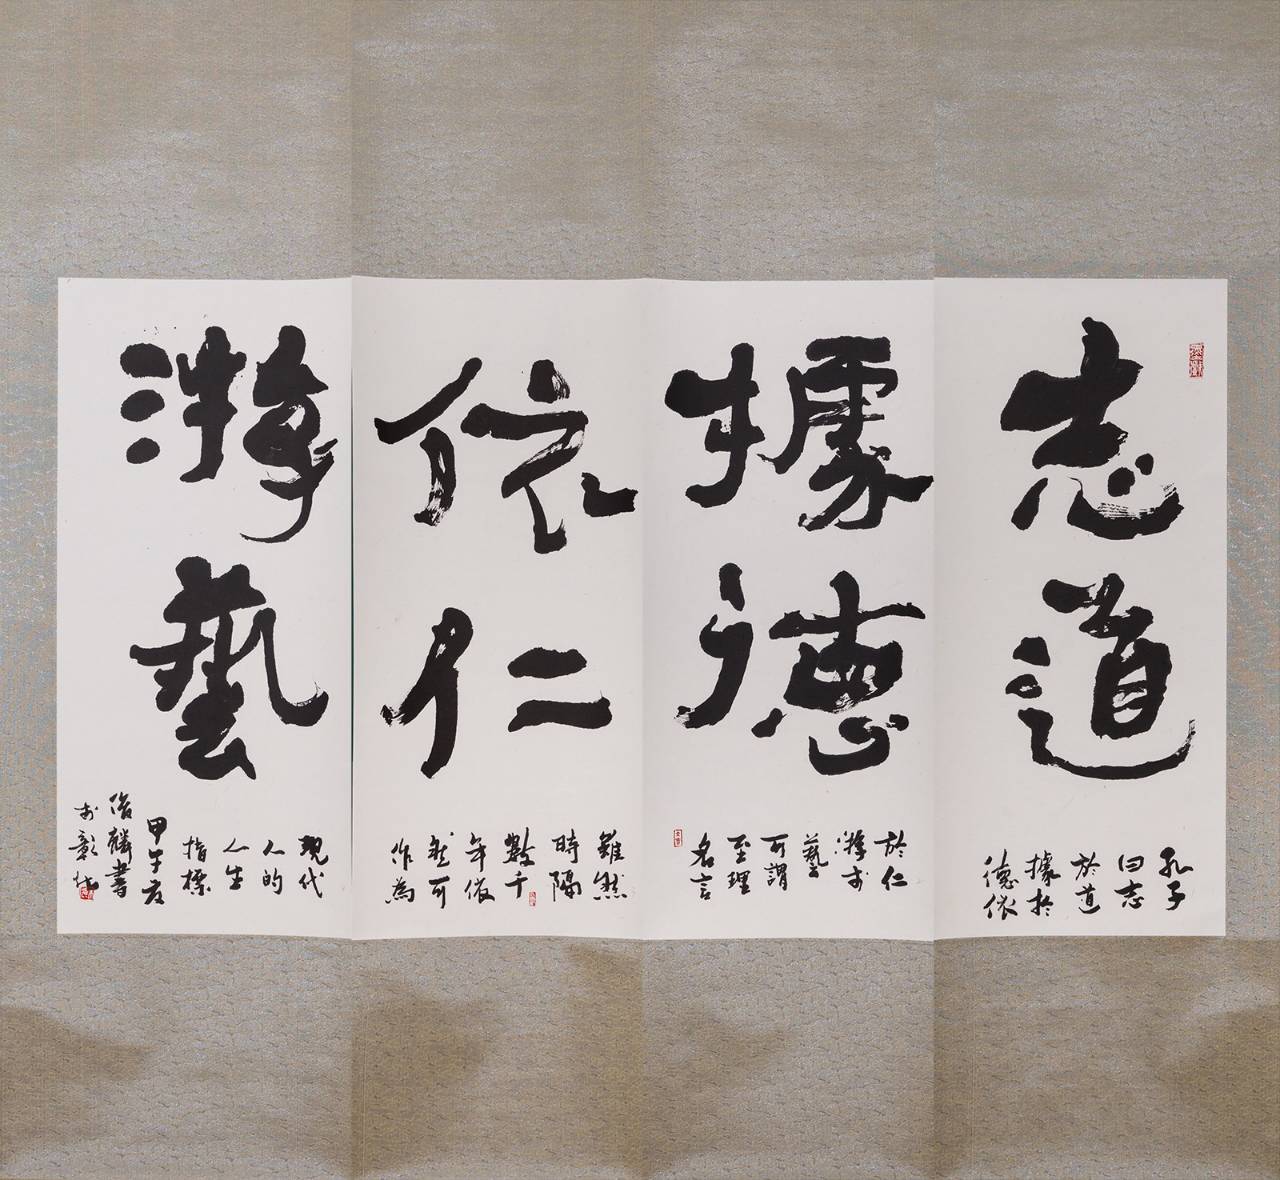 志道
據德
依仁
游藝
孔子
曰志
於道
據於
德依
於仁
游於
藝
可謂
至理
名言
雖然
時隔
數千
年依
然可
作為
現代
人的
人生
指標
甲午夏
俊麟書
於彰化